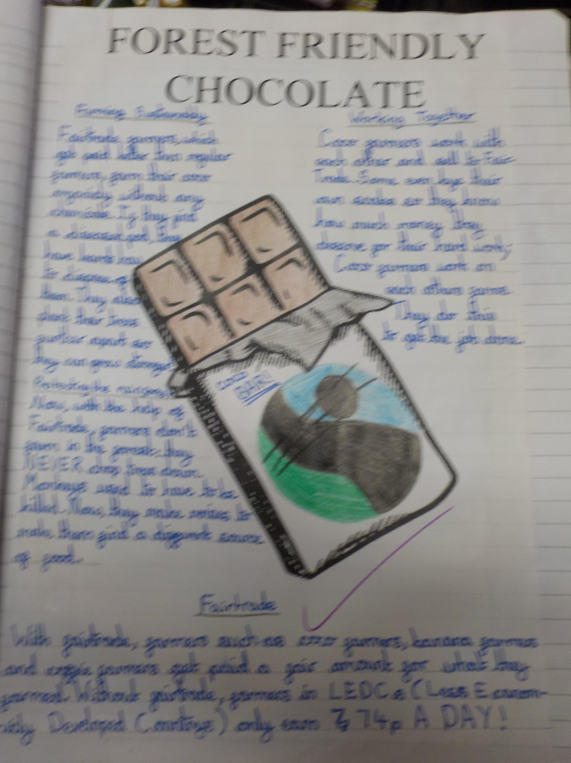 FOREST FRIENDLY
CHOCOLATE
Farming Sustainably
Fairtrade farmers, which
get paid better than regular
farmers, farm their cocoa
organicly without any
chemicals. If they find
a diseased pod, they
have learnt how
to dispose of
them. They also
plant their trees
further apart so
they can grow stronger.
Protecting the rainforest
Now, with the help of
Fairtrade, farmers don't
farm in the forest, they
NEVER chop trees down.
Monkeys used to have to be
killed. Now, they make noises to
make them find a different source
of food.
Working Together
Cocoa farmers work with
each other and sell to Fair
Trade. Some even have their
own scales so they know
how much money they
deserve for their hard work.
Cocoa farmers work on
each others farms.
They do this
to get the job done.
COCO
BAR!
Fairtrade
With fairtrade, farmers such as coco farmers, banana farmers
and coffee farmers get paid a fair amount for what they
farmed. Without fairtrade, farmers in LEDCs (Less Econom-
icly Developed Countrys) only earn 74p A DAY!